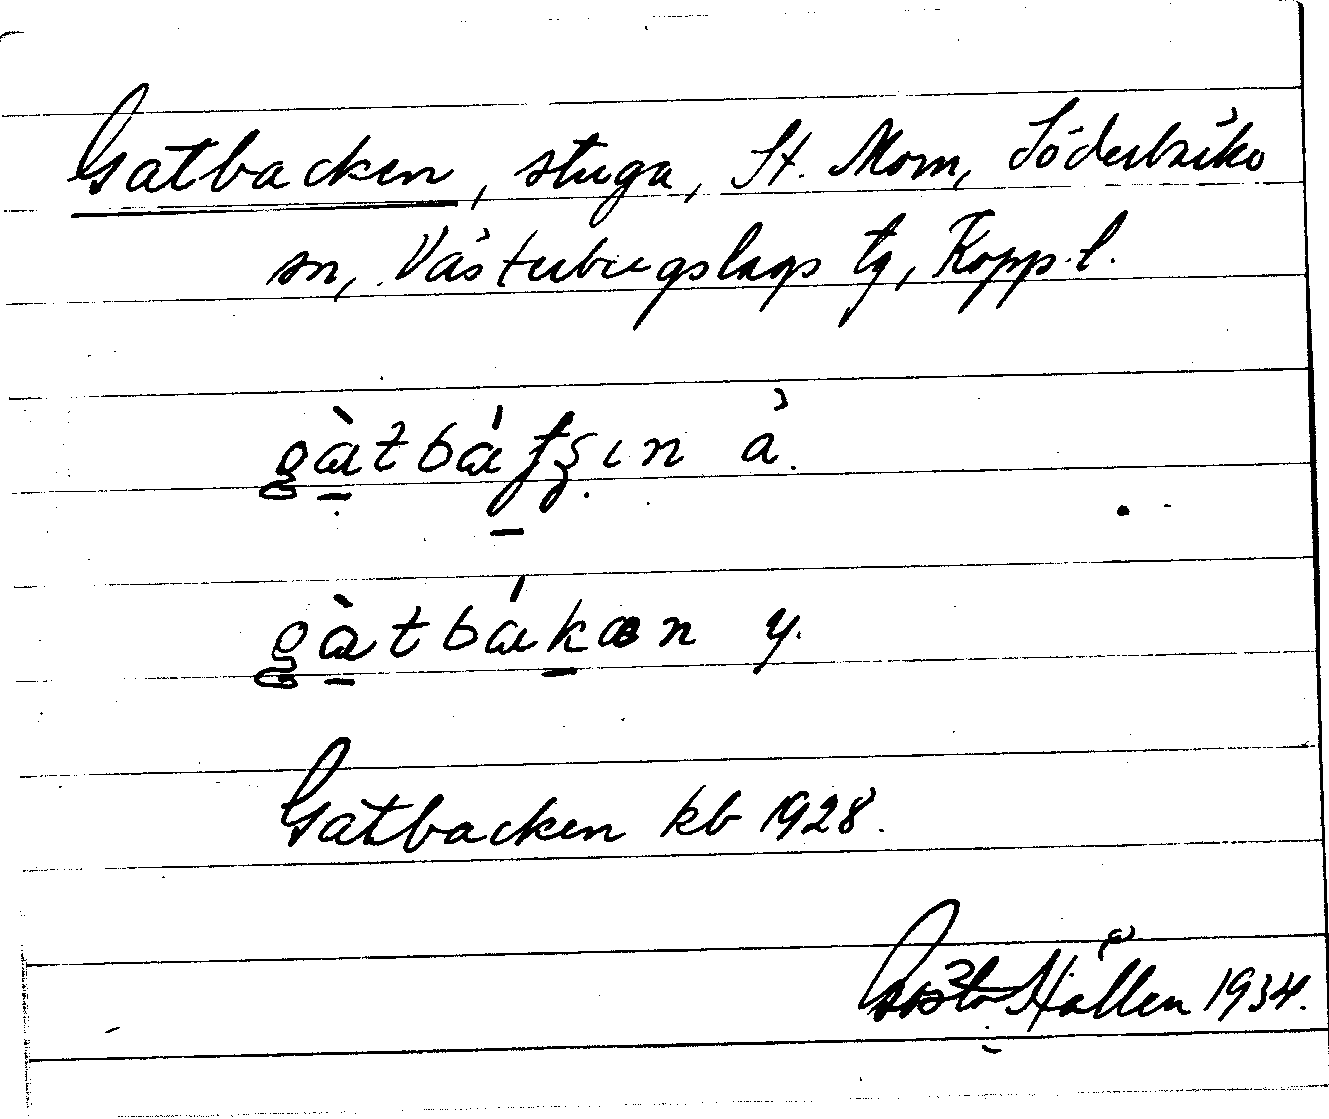 Gatbacken, stuga, St. Mom, Söderbärke
sn, Västerbergslags tg, Kopp. l.
gàtbáʈʂın ä.
gàtbákæn y.
Gatbacken kb 1928.
Gösta Hållen 1934.